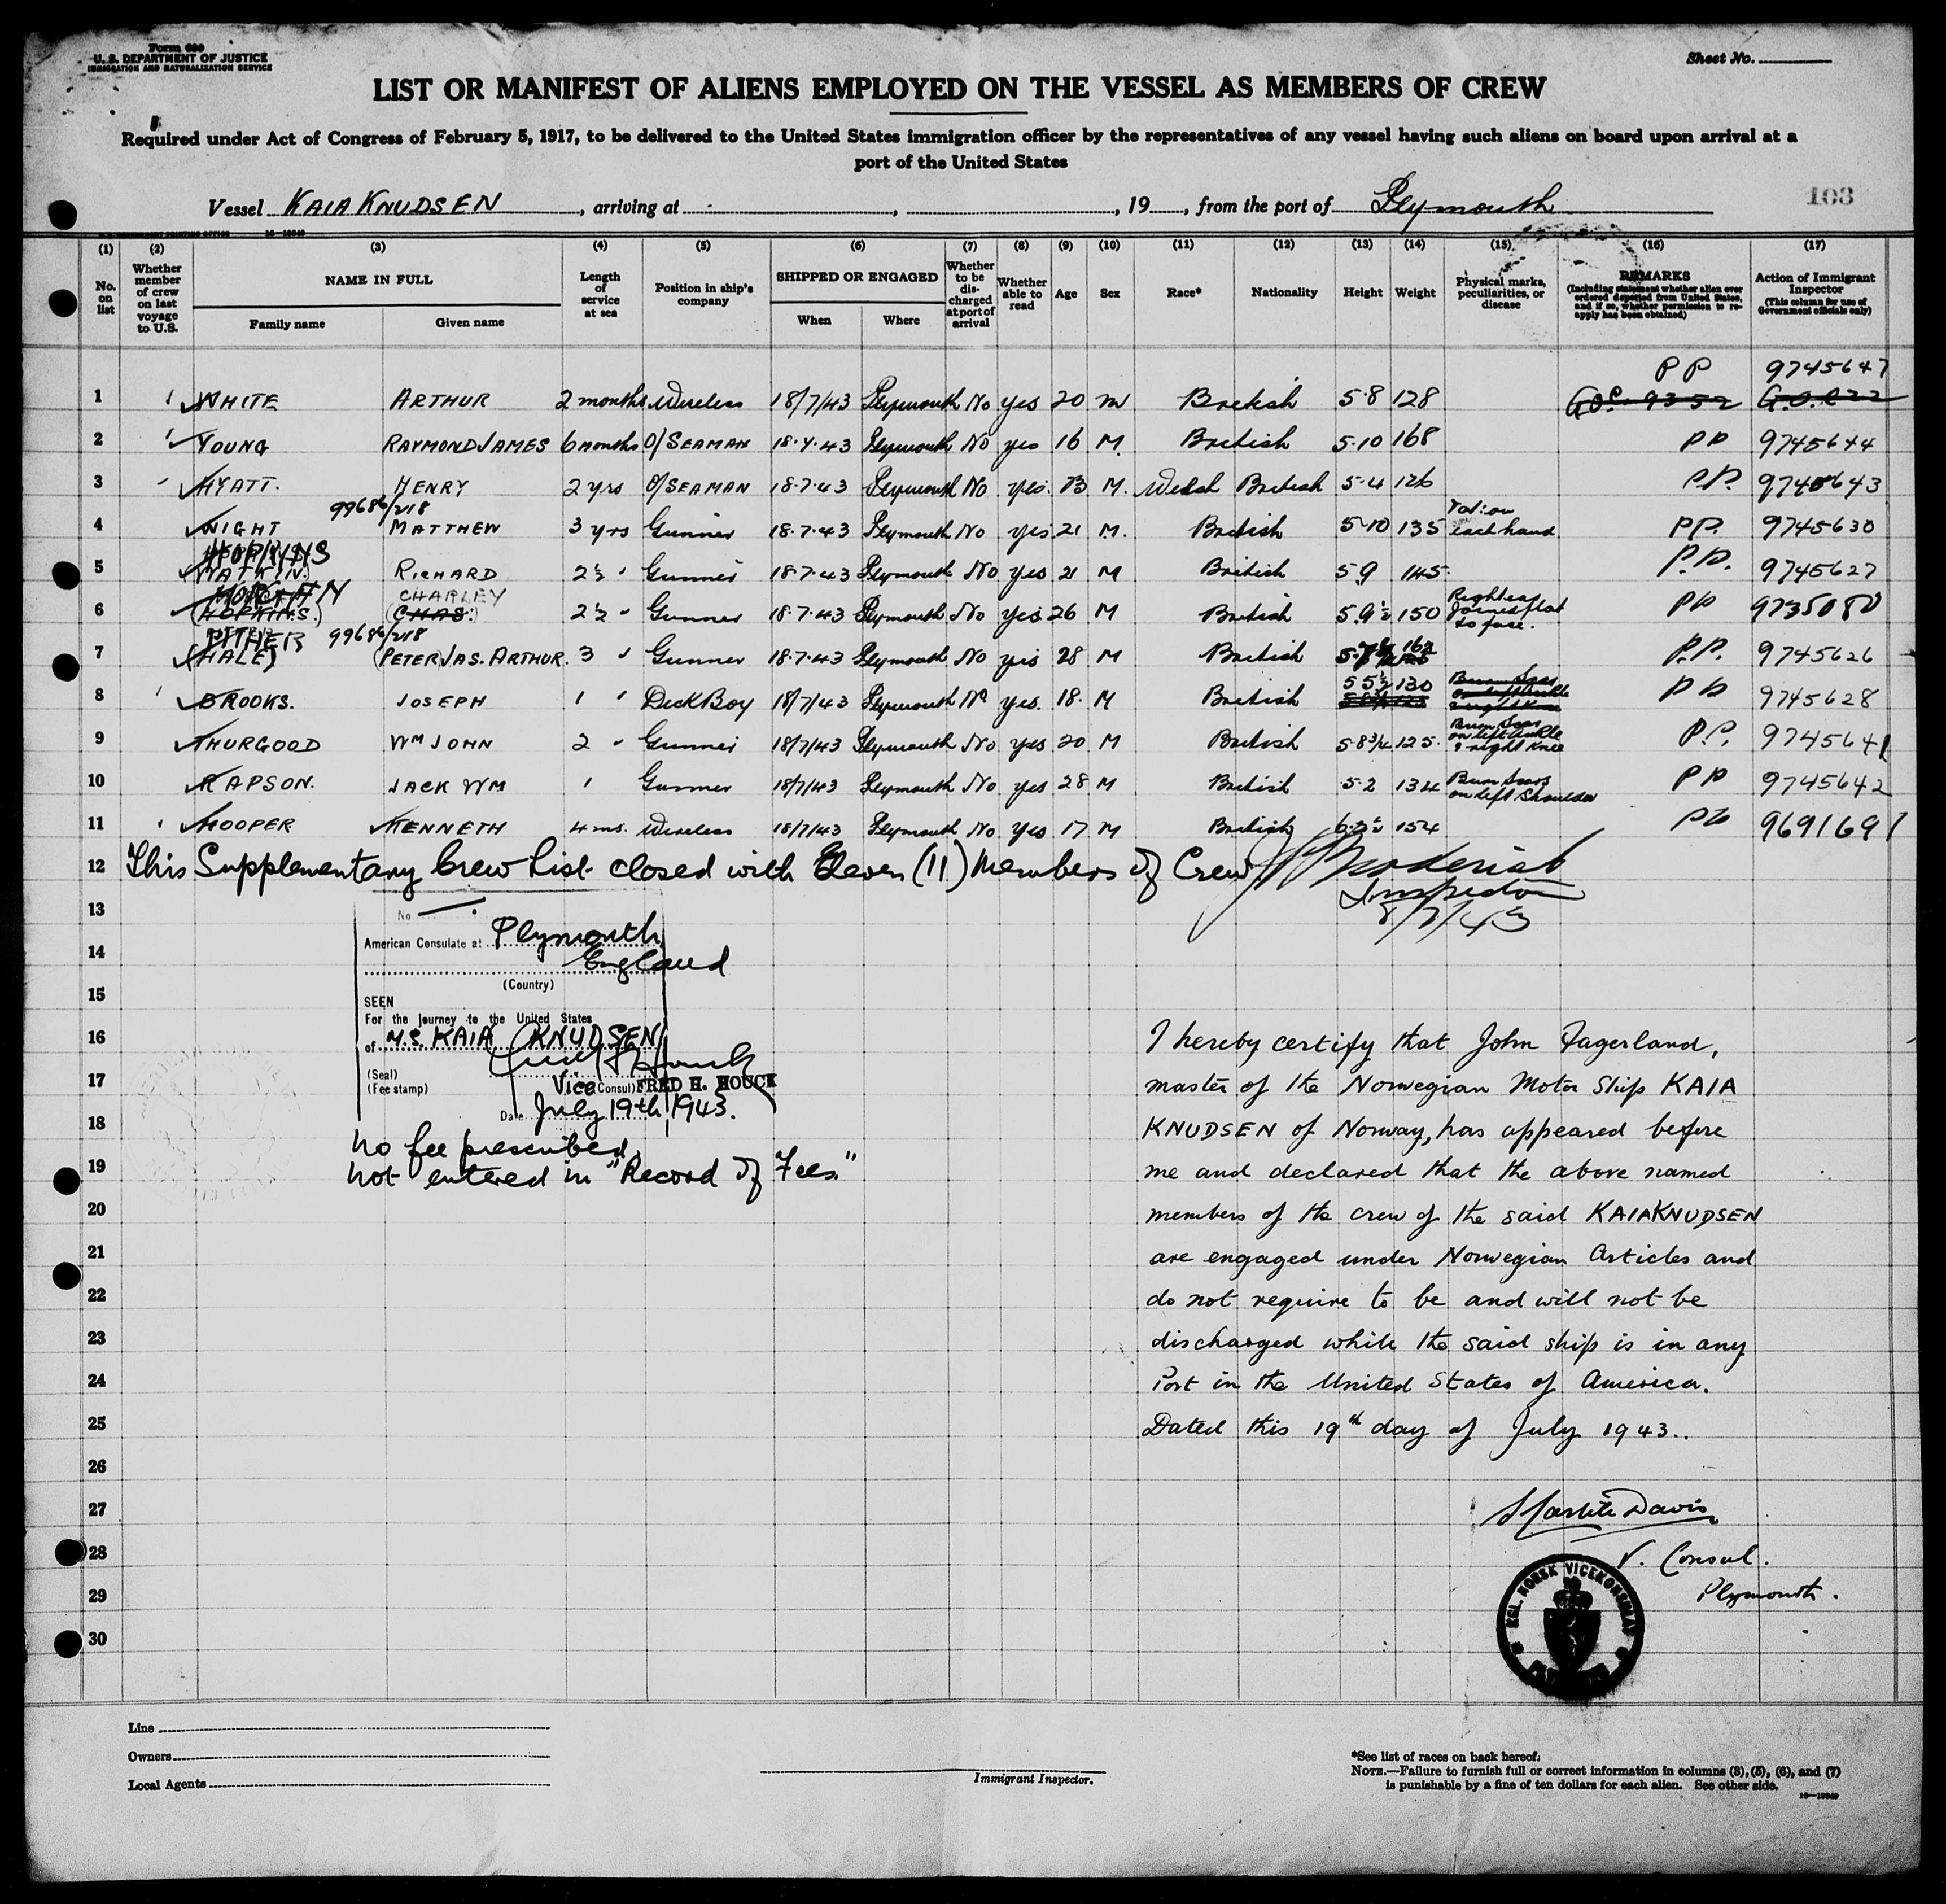 Form 680
U. S. DEPARTMENT OF JUSTICE
IMMIGRATION AND NATURALIZATION SERVICE
Sheet No.
LIST OR MANIFEST OF ALIENS EMPLOYED ON THE VESSEL AS MEMBERS OF CREW
Required under Act of Congress of February 5, 1917, to be delivered to the United States immigration officer by the representatives of any vessel having such aliens on board upon arrival at a
port of the United States
Vessel KAIA KNUDSEN, arriving at , , 19 , from the port of Plymouth 103
(1) (2) (3) (4) (5) (6) (7) (8) (9) (10) (11) (12) (13) (14) (15) (16) (17)
No. on list
Whether member of crew on last voyage to U.S.
NAME IN FULL
Family name Given name
Length of service at sea
Position in ship's company
SHIPPED OR ENGAGED
When Where
Whether to be discharged at port of arrival
Whether able to read
Age
Sex
Race*
Nationality
Height
Weight
Physical marks, peculiarities, or disease
REMARKS
(Including statement whether alien ever ordered deported from United States, and if so, whether permission to reapply has been obtained)
Action of Immigrant Inspector
(This column for use of Government officials only)
PP 9745647
1 WHITE ARTHUR 2 months Wireless 18/7/43 Plymouth No yes 20 M British 5·8 128
2 YOUNG RAYMOND JAMES 6 months O/SEAMAN 18·7·43 Plymouth No yes 16 M. British 5·10 168 PP 9745644
3 HYATT. HENRY 2 yrs O/SEAMAN 18·7·43 Plymouth No yes. M. Welsh British 5·4 126 P.P. 9745643
99686/218
4 NIGHT MATTHEW 3 yrs Gunner 18·7·43 Plymouth No yes 21 M. British 5·10 135 each hand PP. 9745630
HOPKINS
5 (WATKIN) RICHARD 2½ " Gunner 18·7·43 Plymouth No yes 21 M British 5·9 145 P.P. 9745627
MORGAN CHARLEY
6 (HOPKINS.) (CHAS.) 2½ " Gunner 18·7·43 Plymouth No yes 26 M British 5·9½ 150 Right ear joined flat to face. PP 9735080
PITHER 99686/218
7 (HALE) (PETER JAS. ARTHUR. 3 " Gunner 18·7·43 Plymouth No yes 28 M British P.P. 9745626
8 BROOKS. JOSEPH 1 " Deck Boy 18/7/43 Plymouth No yes. 18. M British 5 5½ 130 PP 9745628
9 THURGOOD WM JOHN 2 " Gunner 18/7/43 Plymouth No yes 20 M British 5·8¾ 125. Burn Scar on left Ankle & right Knee P.P. 9745641
10 RAPSON. JACK WM 1 Gunner 18/7/43 Plymouth No yes 28 M British 5·2 134 Burn Scars on left Shoulder PP 9745642
11 HOOPER KENNETH 4 ms. Wireless 18/7/43 Plymouth No yes 17 M British 154 PP 9691691
12 This Supplementary Crew List closed with Eleven (11) Members of Crew
Inspector
13
No.
American Consulate at Plymouth
14 England
(Country)
15 SEEN
For the journey to the United States
16 of M.S. KAIA KNUDSEN
(Seal)
17 (Fee stamp) Vice (Consul) FRED H. HOUCK
Date July 19th, 1943.
18 No fee prescribed.
19 Not entered in "Record of Fees."
I hereby certify that John Fagerland,
master of the Norwegian Motor Ship KAIA
KNUDSEN of Norway, has appeared before
me and declared that the above named
20 members of the crew of the said KAIA KNUDSEN
21 are engaged under Norwegian Articles and
22 do not require to be and will not be
23 discharged while the said ship is in any
24 Port in the United States of America.
25 Dated this 19th day of July 1943..
26
27 Davis
28 V. Consul.
29 Plymouth.
30
KGL. NORSK VICEKONSULAT
Line
Owners
Local Agents
Immigrant Inspector.
*See list of races on back hereof.
NOTE.—Failure to furnish full or correct information in columns (3), (5), (6), and (7)
is punishable by a fine of ten dollars for each alien. See other side.